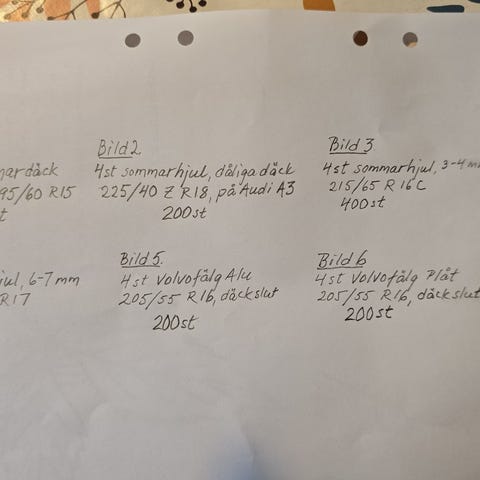 Bild 2
4st sommarhjul, dåliga däck
225/40 Z R18, på Audi A3
200st
Bild 3
4st sommarhjul, 3-4 m
215/65 R 16 C
400st
däck
95/60 R15
st
jul, 6-7 mm
R17
Bild 5.
4 st Volvofälg Alu
205/55 R 16, däck slut
200st
Bild 6
4 st Volvofälg Plåt
205/55 R 16, däck slut
200st